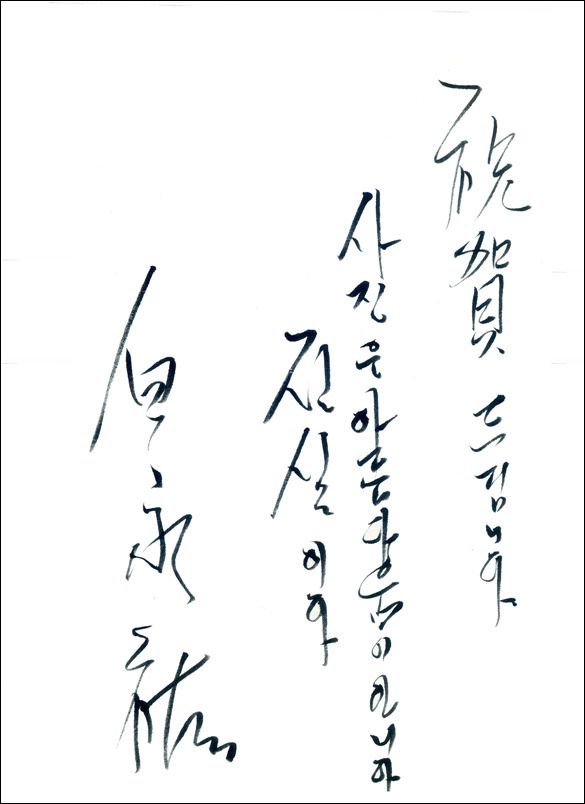 祝賀 드립니다
사진은 아름다움이 아니라
진실이다
白永祐